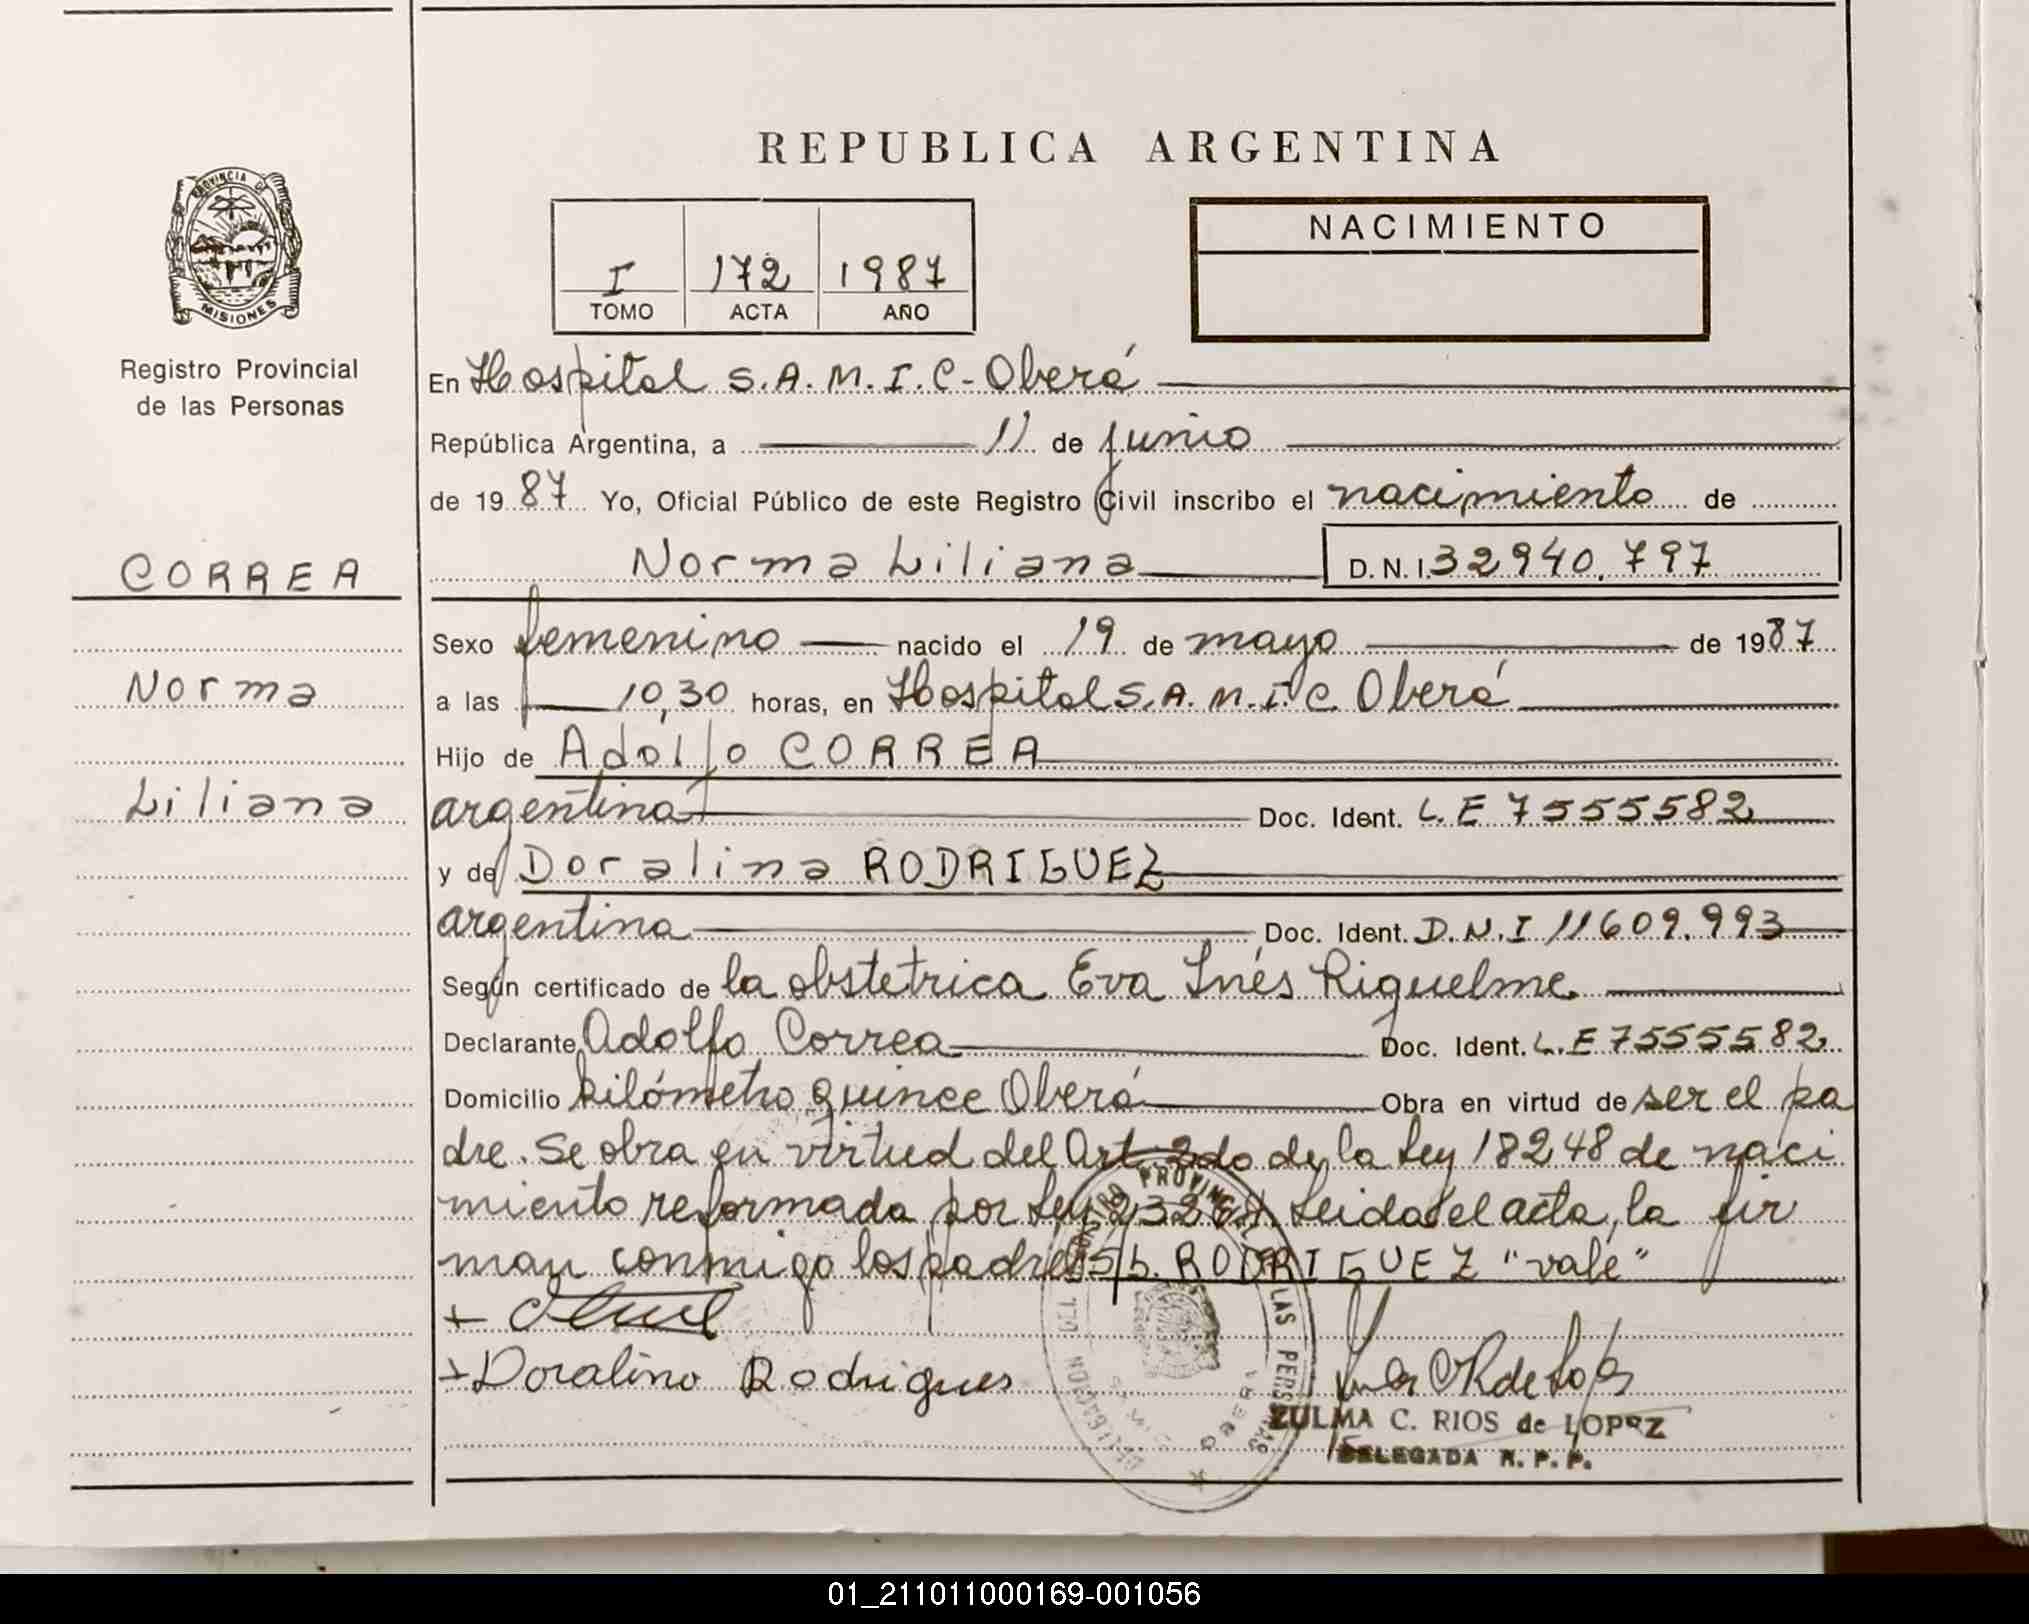 REPUBLICA ARGENTINA
PROVINCIA DE
MISIONES
Registro Provincial
de las Personas
CORREA
Norma
Liliana
I 172 1987
TOMO ACTA AÑO
NACIMIENTO
En Hospital S.A.M.I.C - Oberá
República Argentina, a 11 de junio
de 1987 Yo, Oficial Público de este Registro Civil inscribo el nacimiento de
Norma Liliana D.N.I. 32940.797
Sexo femenino nacido el 19 de mayo de 1987
a las 10,30 horas, en Hospital S.A.M.I.C. Oberá
Hijo de Adolfo CORREA
argentina Doc. Ident. L.E 7555582
y de Doralina RODRIGUEZ
argentina Doc. Ident. D.N.I 11609.993
Según certificado de la obstetrica Eva Inés Riquelme
Declarante Adolfo Correa Doc. Ident. L.E 7555582
Domicilio kilómetro quince Oberá Obra en virtud de ser el pa
dre. Se obra en virtud del Art 2do de la Ley 18248 de naci
miento reformada por Ley Leida el acta, la fir
man conmigo los padres S/b. RODRIGUEZ "vale"
+
+ Doralino Rodrigues
ZULMA C. RIOS de LOPEZ
DELEGADA R. P. P.
REGISTRO PROVINCIAL DE LAS PERSONAS
DELEGACION
OBERA
01_211011000169-001056